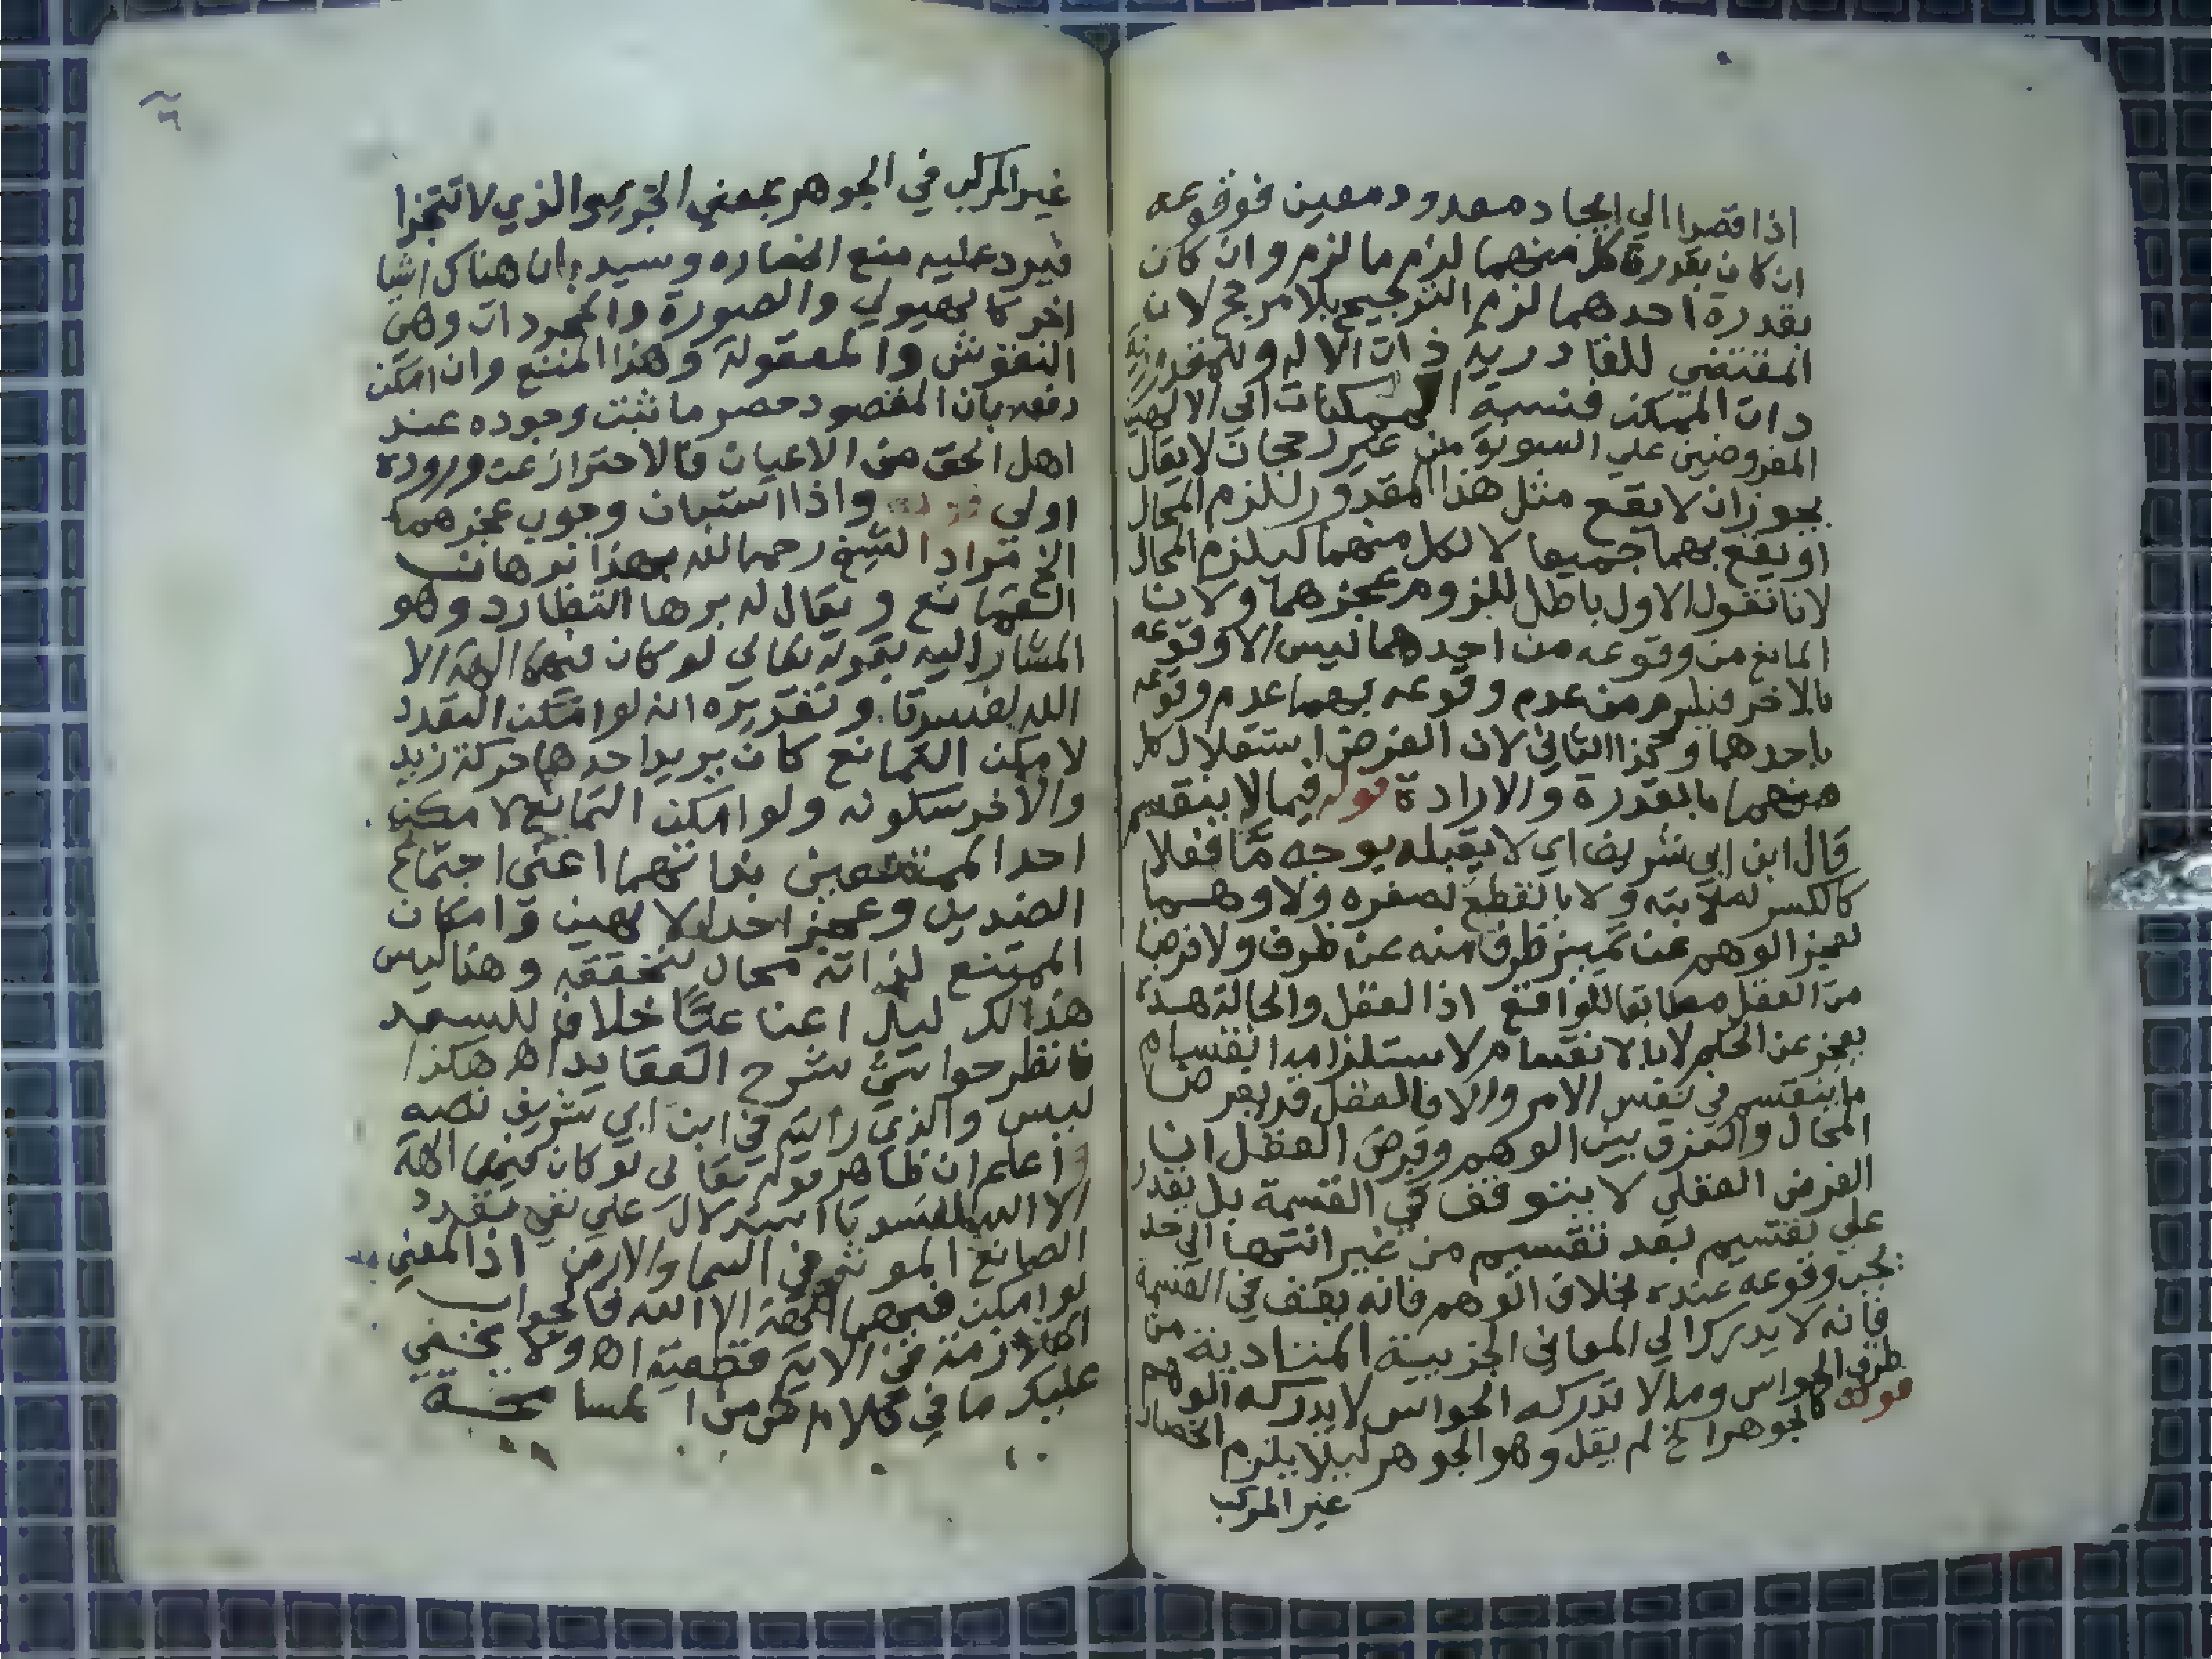 اذا قصدا الي ايجاد معدود معين فوقوعه
ان كان بقدرة كل منهما لزم ما لزم وان كان
بقدرة احدهما لزم الترجيح بلا مرجح لان
المقتضي للقادرية ذات الاله وللمقدورية
ذات الممكن فنسبة الممكنات الي الالهين
المفروضين علي السوية من غير رجحان لا يقال
يجوز ان لا يقع مثل هذا المقدور للزم المحال
او يقع بهما جميعا لا لكل منهما ليلزم المحال
لانا نقول الاول باطل للزوم عجزهما ولان
المانع من وقوعه من احدهما ليس الا وقوعه
بالاخر فيلزم من عدم وقوعه بهما عدم وقوعه
باحدهما وكذا الثاني لان الفرض استقلال كل
منهما بالقدرة والارادة قوله فيما لا ينقسم
قال ابن ابي شريف اي لا يقبله بوجه مّا فعلا
كالكسر لصلابته ولا بالقطع لصغره ولا وهما
لعجز الوهم عن تمييز طرف منه عن طرف ولا فرضا
من العقل مطابقا للواقع اذا العقل والحالة هذه
يعجز عن الحكم لا بالانقسام لاستلزامه انقسام
ما ينقسم في نفس الامر والا فالعقل قد يفرض
المحال والفرق بين الوهم وفرض العقل ان
الفرض العقلي لا يتوقف في القسمة بل يقدر
علي تقسيم بعد تقسيم من غير انتها الي حد
يجب وقوعه عنده بخلاف الوهم فانه يقف في القسمة
فانه لا يدرك الي المعاني الجزيية المتادية من
طرف الحواس وما لا تدركه الحواس لا يدركه الوهم
قوله كالجوهر الخ لم يقل وهو الجوهر ليلا يلزم انحصار
غير المركب
غير المركب في الجوهر بمعني الجزء والذي لا تتجزا
فيرد عليه منع انحصاره وسيد بان هناك اشيا
اخر كالهيولي والصورة والمجردات وهي
النفوس والمعقولة وهذا المنع وان امكن
دفعه بان المقصود حصر ما ثبت وجوده عند
اهل الحق من الاعيان فالاحتراز عن وروده
اولي قوله واذا استبان وجوب عجزهما
الخ مراد الشيخ رحمه الله بهذا برهان
التمانع ويقال له برها التطارد وهو
المشار اليه بقوله تعالي لو كان فيهما الهة الا
الله لفسدتا وتقريره انه لو امكن التعدد
لامكن التمانع كان يريد احدهما حركة زيد
والاخر سكونه ولو امكن التمانع لامكن
احد الممتنعين بذاتهما اعني اجتماع
الضدين وعجز احد الالهين وامكان
الممتنع لذاته محال تحققه وهنا ليس
هذا الدليل اعنا عيًّا خلافا للسعد
فانظر حواشي شرح العقايد اه هكذا
لبس والذي رايته في ابن ابي شريف نصه
واعلم ان ظاهر قوله تعالي لو كان فيهما الهة
الا الله لفسدتا استدلال علي نفي تعدد
الصانع الموثر في السما والارض اذ المعني
لو امكن فيهما الهة الا الله فالجواب
الملازمة في الاية قطعية اه ولا يخفي
عليك ما في كلامهم من المسامحة